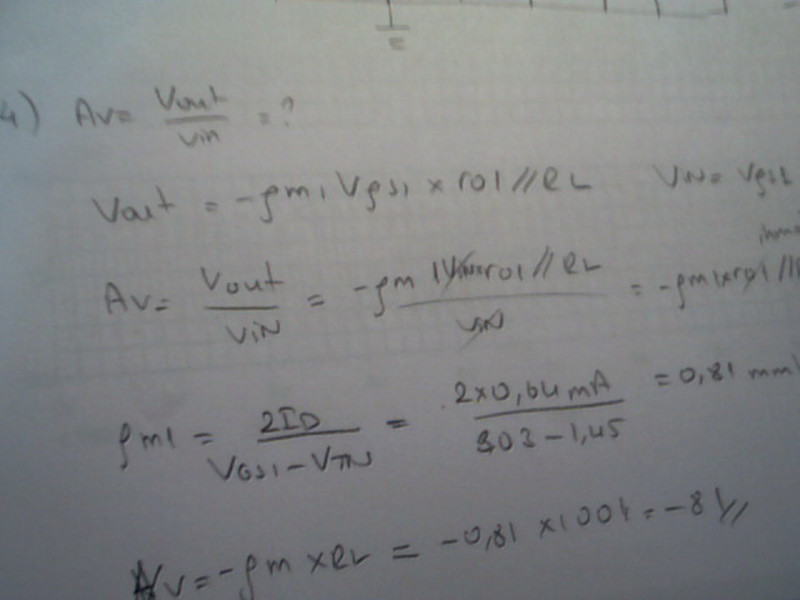 4) Av = Vout / Vin = ?
Vout = -gm1 Vgs1 x ro1 // RL VIN = Vgs1
Av = Vout / VIN = -gm1 VIN x ro1 // RL / VIN = -gm1 x ro1 //
gm1 = 2ID / VGS1 - VTN = 2x0,64mA / 303 - 1,45 = 0,81 mm
Av = -gm x RL = -0,81 x 100k = -81//